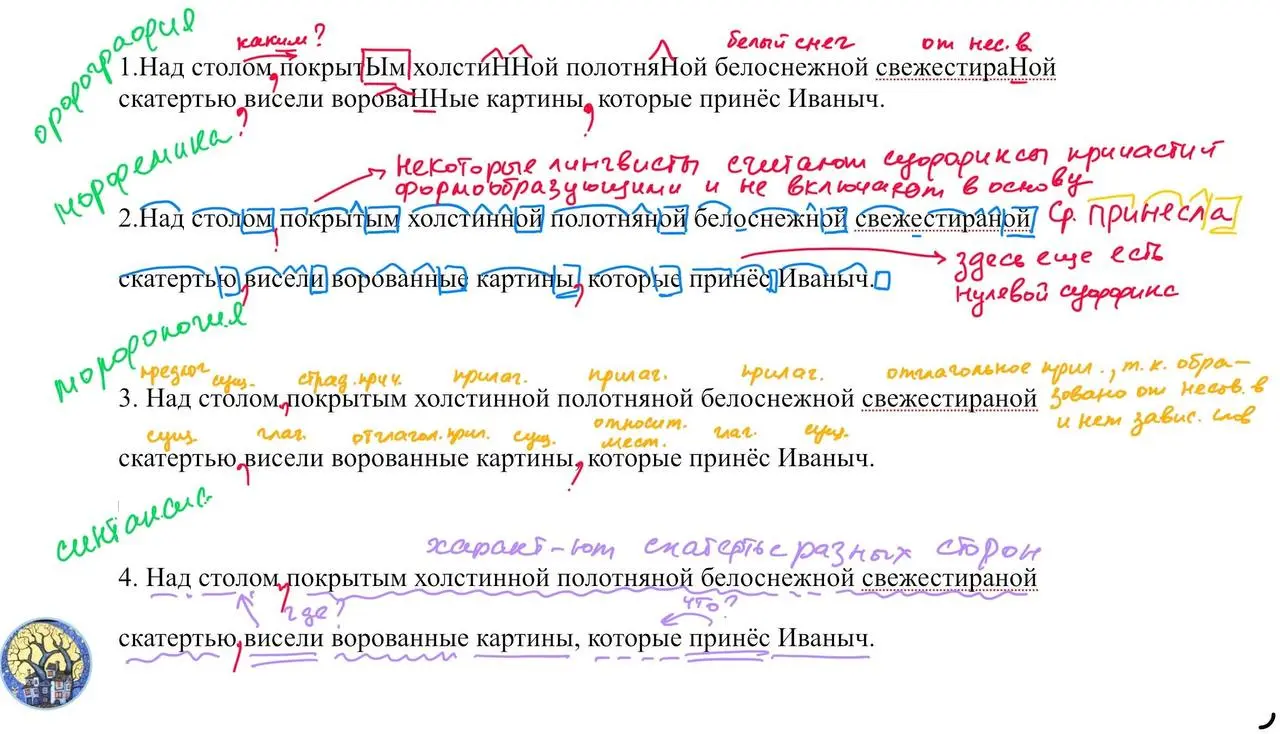 орфография
каким?
белый снег
от нес. в
1.Над столом, покрытЫм холстиННой полотняНой белоснежной свежестираНой
скатертью, висели ворОваННые картины, которые принёс Иваныч.
морфемика
некоторые лингвисты считают суффиксы причастий
формообразующими и не включают в основу
2.Над столом, покрытым холстинной полотняной белоснежной свежестираной
Ср. принесла
скатертью, висели ворованные картины, которые принёс Иваныч.
здесь еще есть
нулевой суффикс
морфология
предлог сущ. страд. прич. прилаг. прилаг. прилаг. отглагольное прил., т.к. обра-
3. Над столом, покрытым холстинной полотняной белоснежной свежестираной
зовано от несов. в
и нет завис. слов
сущ. глаг. отглагол. прил. сущ. относит. мест. глаг. сущ.
скатертью, висели ворованные картины, которые принёс Иваныч.
синтаксис
характ-ют скатерть с разных сторон
4. Над столом, покрытым холстинной полотняной белоснежной свежестираной
где?
что?
скатертью, висели ворованные картины, которые принёс Иваныч.